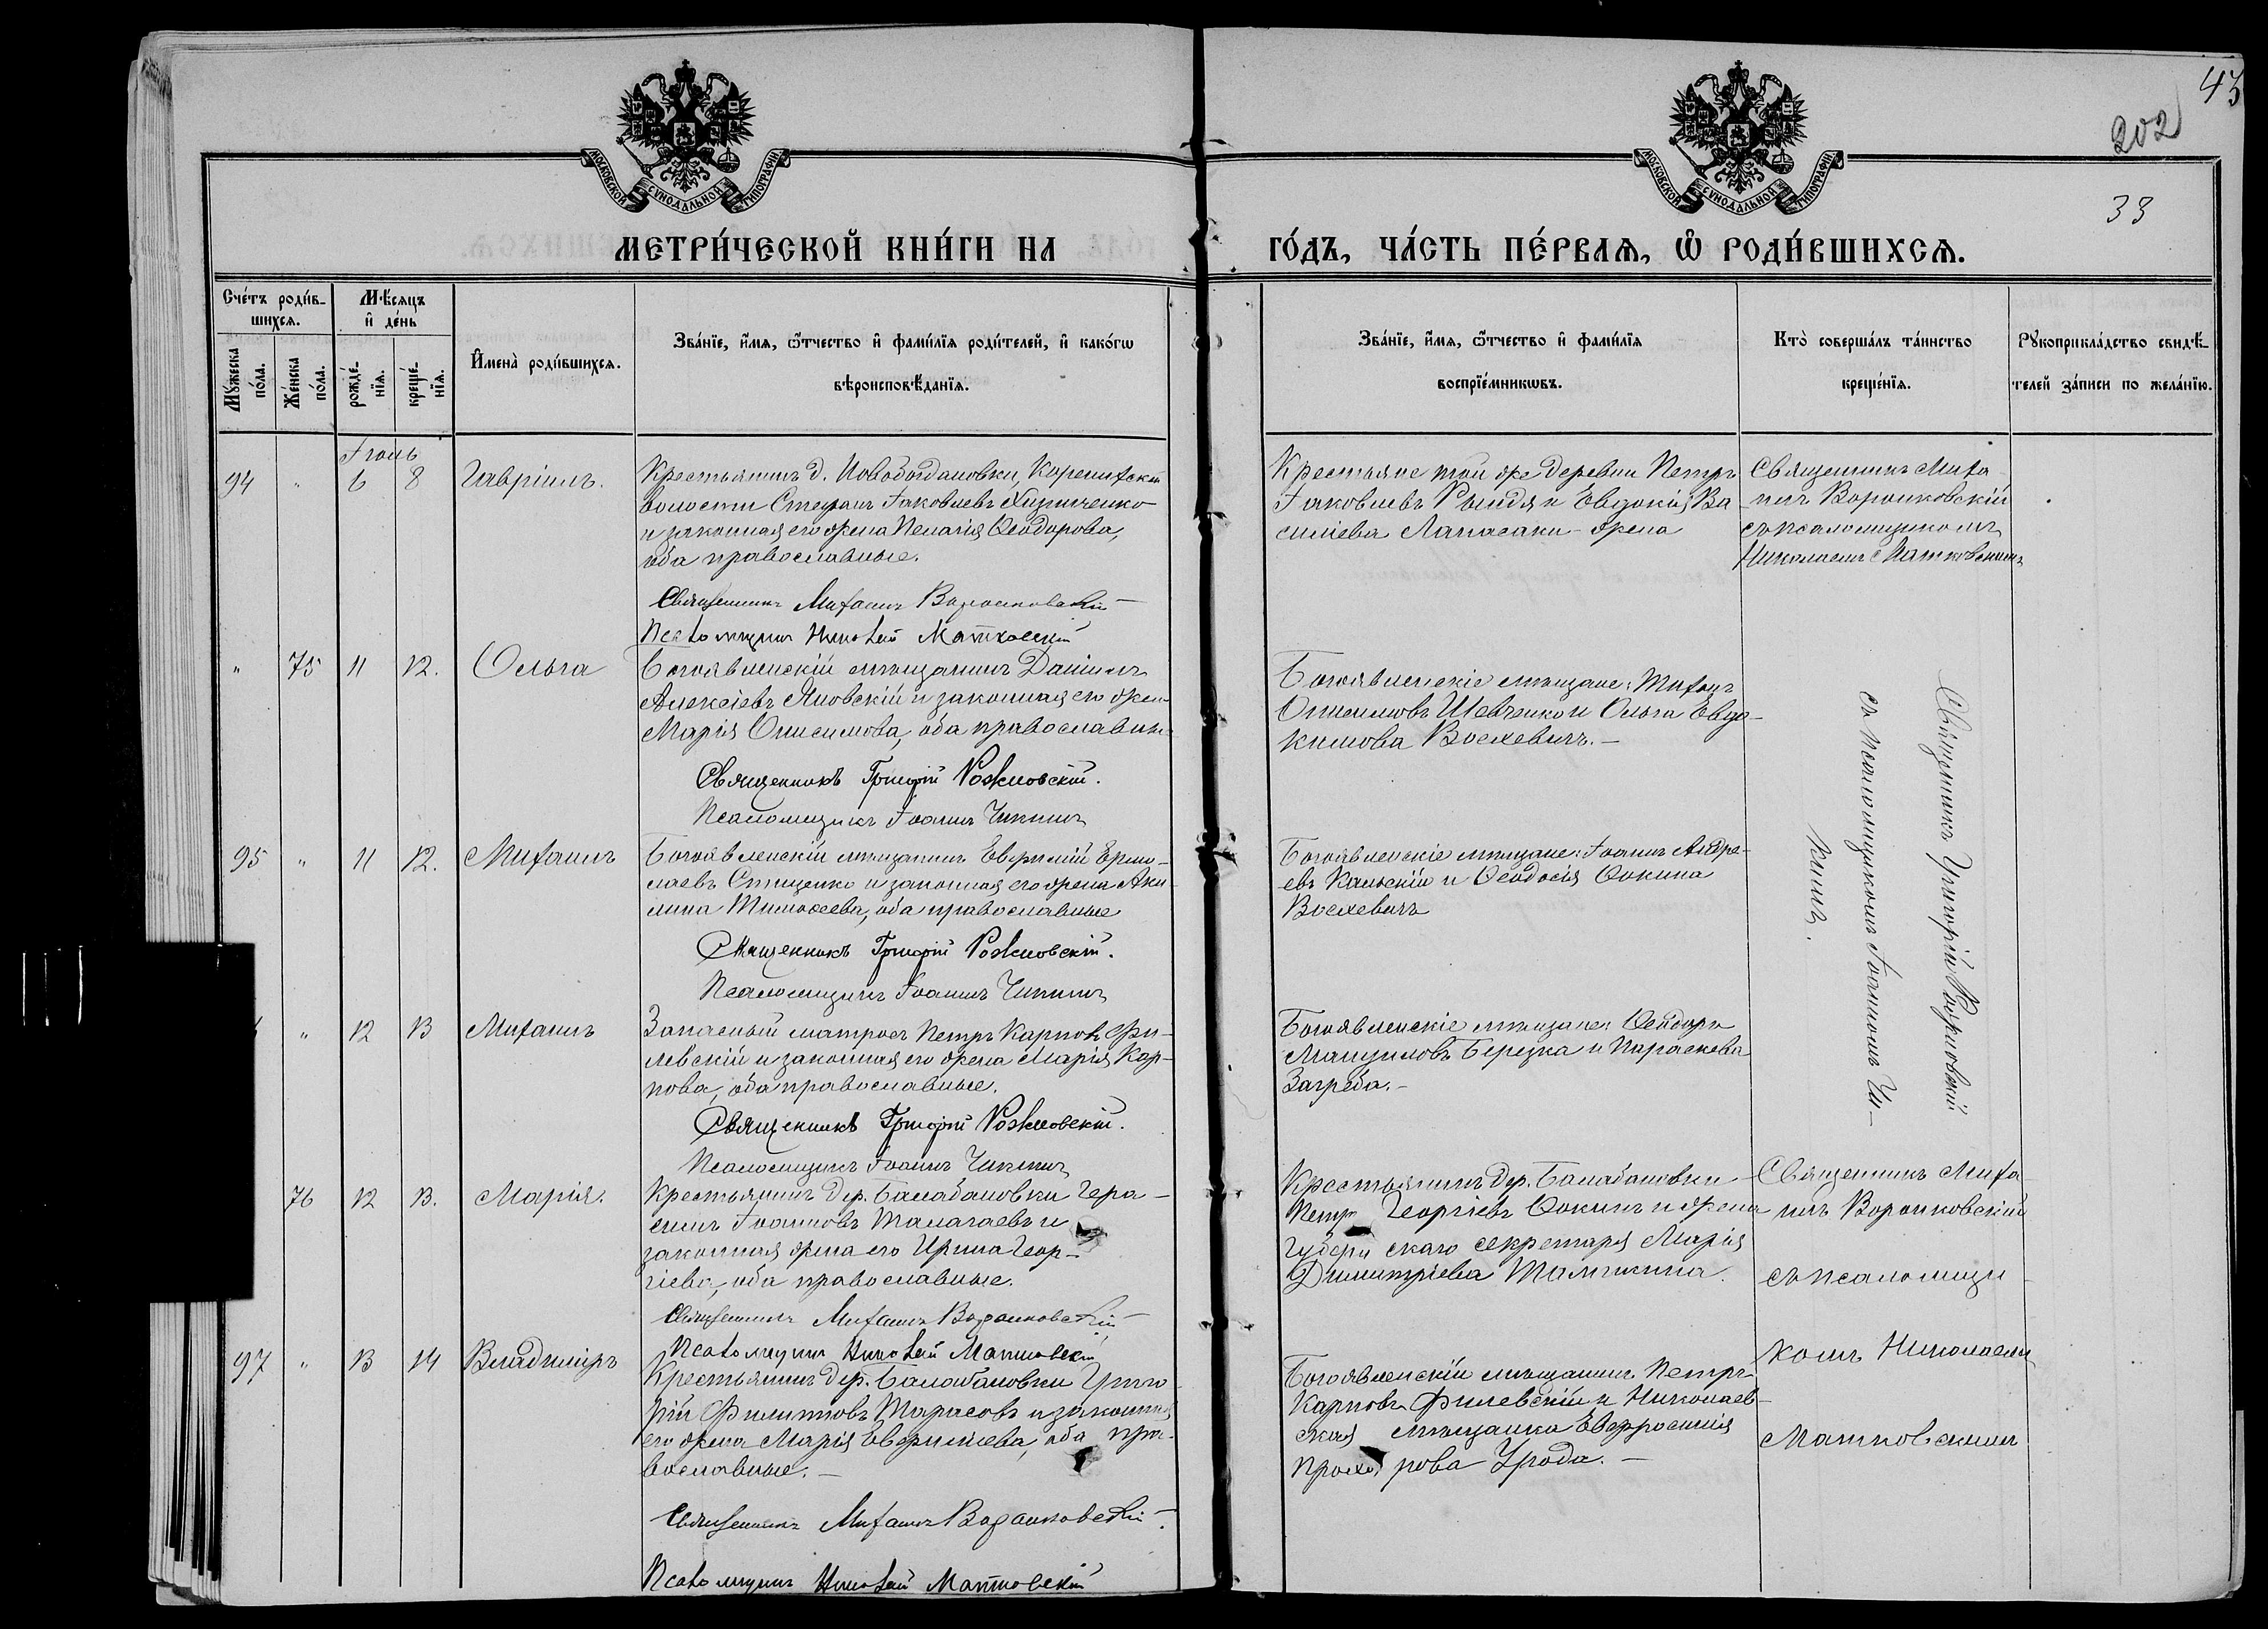 43
202
33
МОСКОВСКОЙ СѴНОДАЛЬНОЙ ТИПОГРАФІИ
МОСКОВСКОЙ СѴНОДАЛЬНОЙ ТИПОГРАФІИ
МЕТРИ́ЧЕСКОЙ КНИ́ГИ НА
ГО́ДЪ, ЧА́СТЬ ПЕ́РВАѦ, Ѽ РОДИ́ВШИХСѦ.
Сче́тъ роди́в-
шихсѧ.
Мѣ́сѧцъ
и҆ де́нь
Мꙋ́жеска
по́ла.
Же́нска
по́ла.
рожде́-
нїѧ.
креще́-
нїѧ.
И҆мена̀ роди́вшихсѧ.
Зва́нїе, и҆́мѧ, ѻ҆́тчество и҆ фами́лїѧ роди́телей, и҆ како́гѡ
вѣроисповѣ́данїѧ.
Зва́нїе, и҆́мѧ, ѻ҆́тчество и҆ фами́лїѧ
воспрїе́мникѡвъ.
Кто̀ соверша́лъ та́инство
креще́нїѧ.
Рꙋкоприкла́дство свидѣ́-
телей за́писи по жела́нїю.
Іюнь
94 " 6 8 Гавріилъ.
Крестьянинъ д. Новобогдановки,
волости Стефанъ Іаковлевъ
и законная его жена Пелагія Ѳеодорова,
оба православные.
Священникъ Михаилъ Воронковскій
Псаломщикъ Николай Матковскій
Крестьяне той же деревни Петръ
Іаковлевъ и Евдокія Ва
силіева жена
Священникъ Миха
илъ Воронковскій
съ псаломщикомъ
Николаемъ Матковскимъ
" 75 11 12. Ольга
Богоявленскій мѣщанинъ Даніилъ
Алексіевъ Яновскій и законная его жена
Марія Онисимова, оба православн.
Священникъ Григорій Рожновскій.
Псаломщикъ Іоаннъ Чикинъ
Богоявленскіе мѣщане: Тихонъ
Онисимовъ Шевченко и Ольга Евдо-
кимова Воскевичъ.-
Священникъ Григорій Рожновскій
съ псаломщикомъ Іоанномъ Чи-
кинъ.
95 " 11 12. Михаилъ
Богоявленскій мѣщанинъ Евфимій Ермо-
лаевъ Стиценко и законная его жена Аки
лина Тимоѳеева, оба православные
Священникъ Григорій Рожновскій.
Псаломщикъ Іоаннъ Чикинъ
Богоявленскіе мѣщане: Іоаннъ Андре-
евъ Кальскій и Ѳеодосія Ѳокина
Воскевичъ
" 12 13 Михаилъ
Запасный матросъ Петръ Карповъ Фи-
левскій и законная его жена Марія Кар-
пова, оба православные.
Священникъ Григорій Рожновскій.
Псаломщикъ Іоаннъ Чикинъ
Богоявленскіе мѣщане: Ѳеодоръ
Мануиловъ Березка и Параскева
Загреба.-
76 12 13. Марія.
Крестьянинъ дер. Балабановки Гера-
симъ Іоанновъ Талагаевъ и
законная жена его Ирина Геор-
гіева, оба православные.
Священникъ Михаилъ Воронковскій
Псаломщикъ Николай Матковскій
Крестьянинъ дер. Балабановки
Петръ Георгіевъ Ѳокинъ и жена
губернскаго секретаря Марія
Димитріева
Священникъ Миха
илъ Воронковскій
съ псаломщи-
комъ Николаемъ
Матковскимъ
97 " 13 14 Владиміръ
Крестьянинъ дер. Балабановки Григо
рій Филипповъ Тарасовъ и законная
его жена Марія Евфиміева, оба пра-
вославные.-
Священникъ Михаилъ Воронковскій.
Псаломщикъ Николай Матковскій
Богоявленскій мѣщанинъ Петръ
Карповъ Филевскій и Николаев-
ская мѣщанка Евфросинія
Прохорова Урода.-